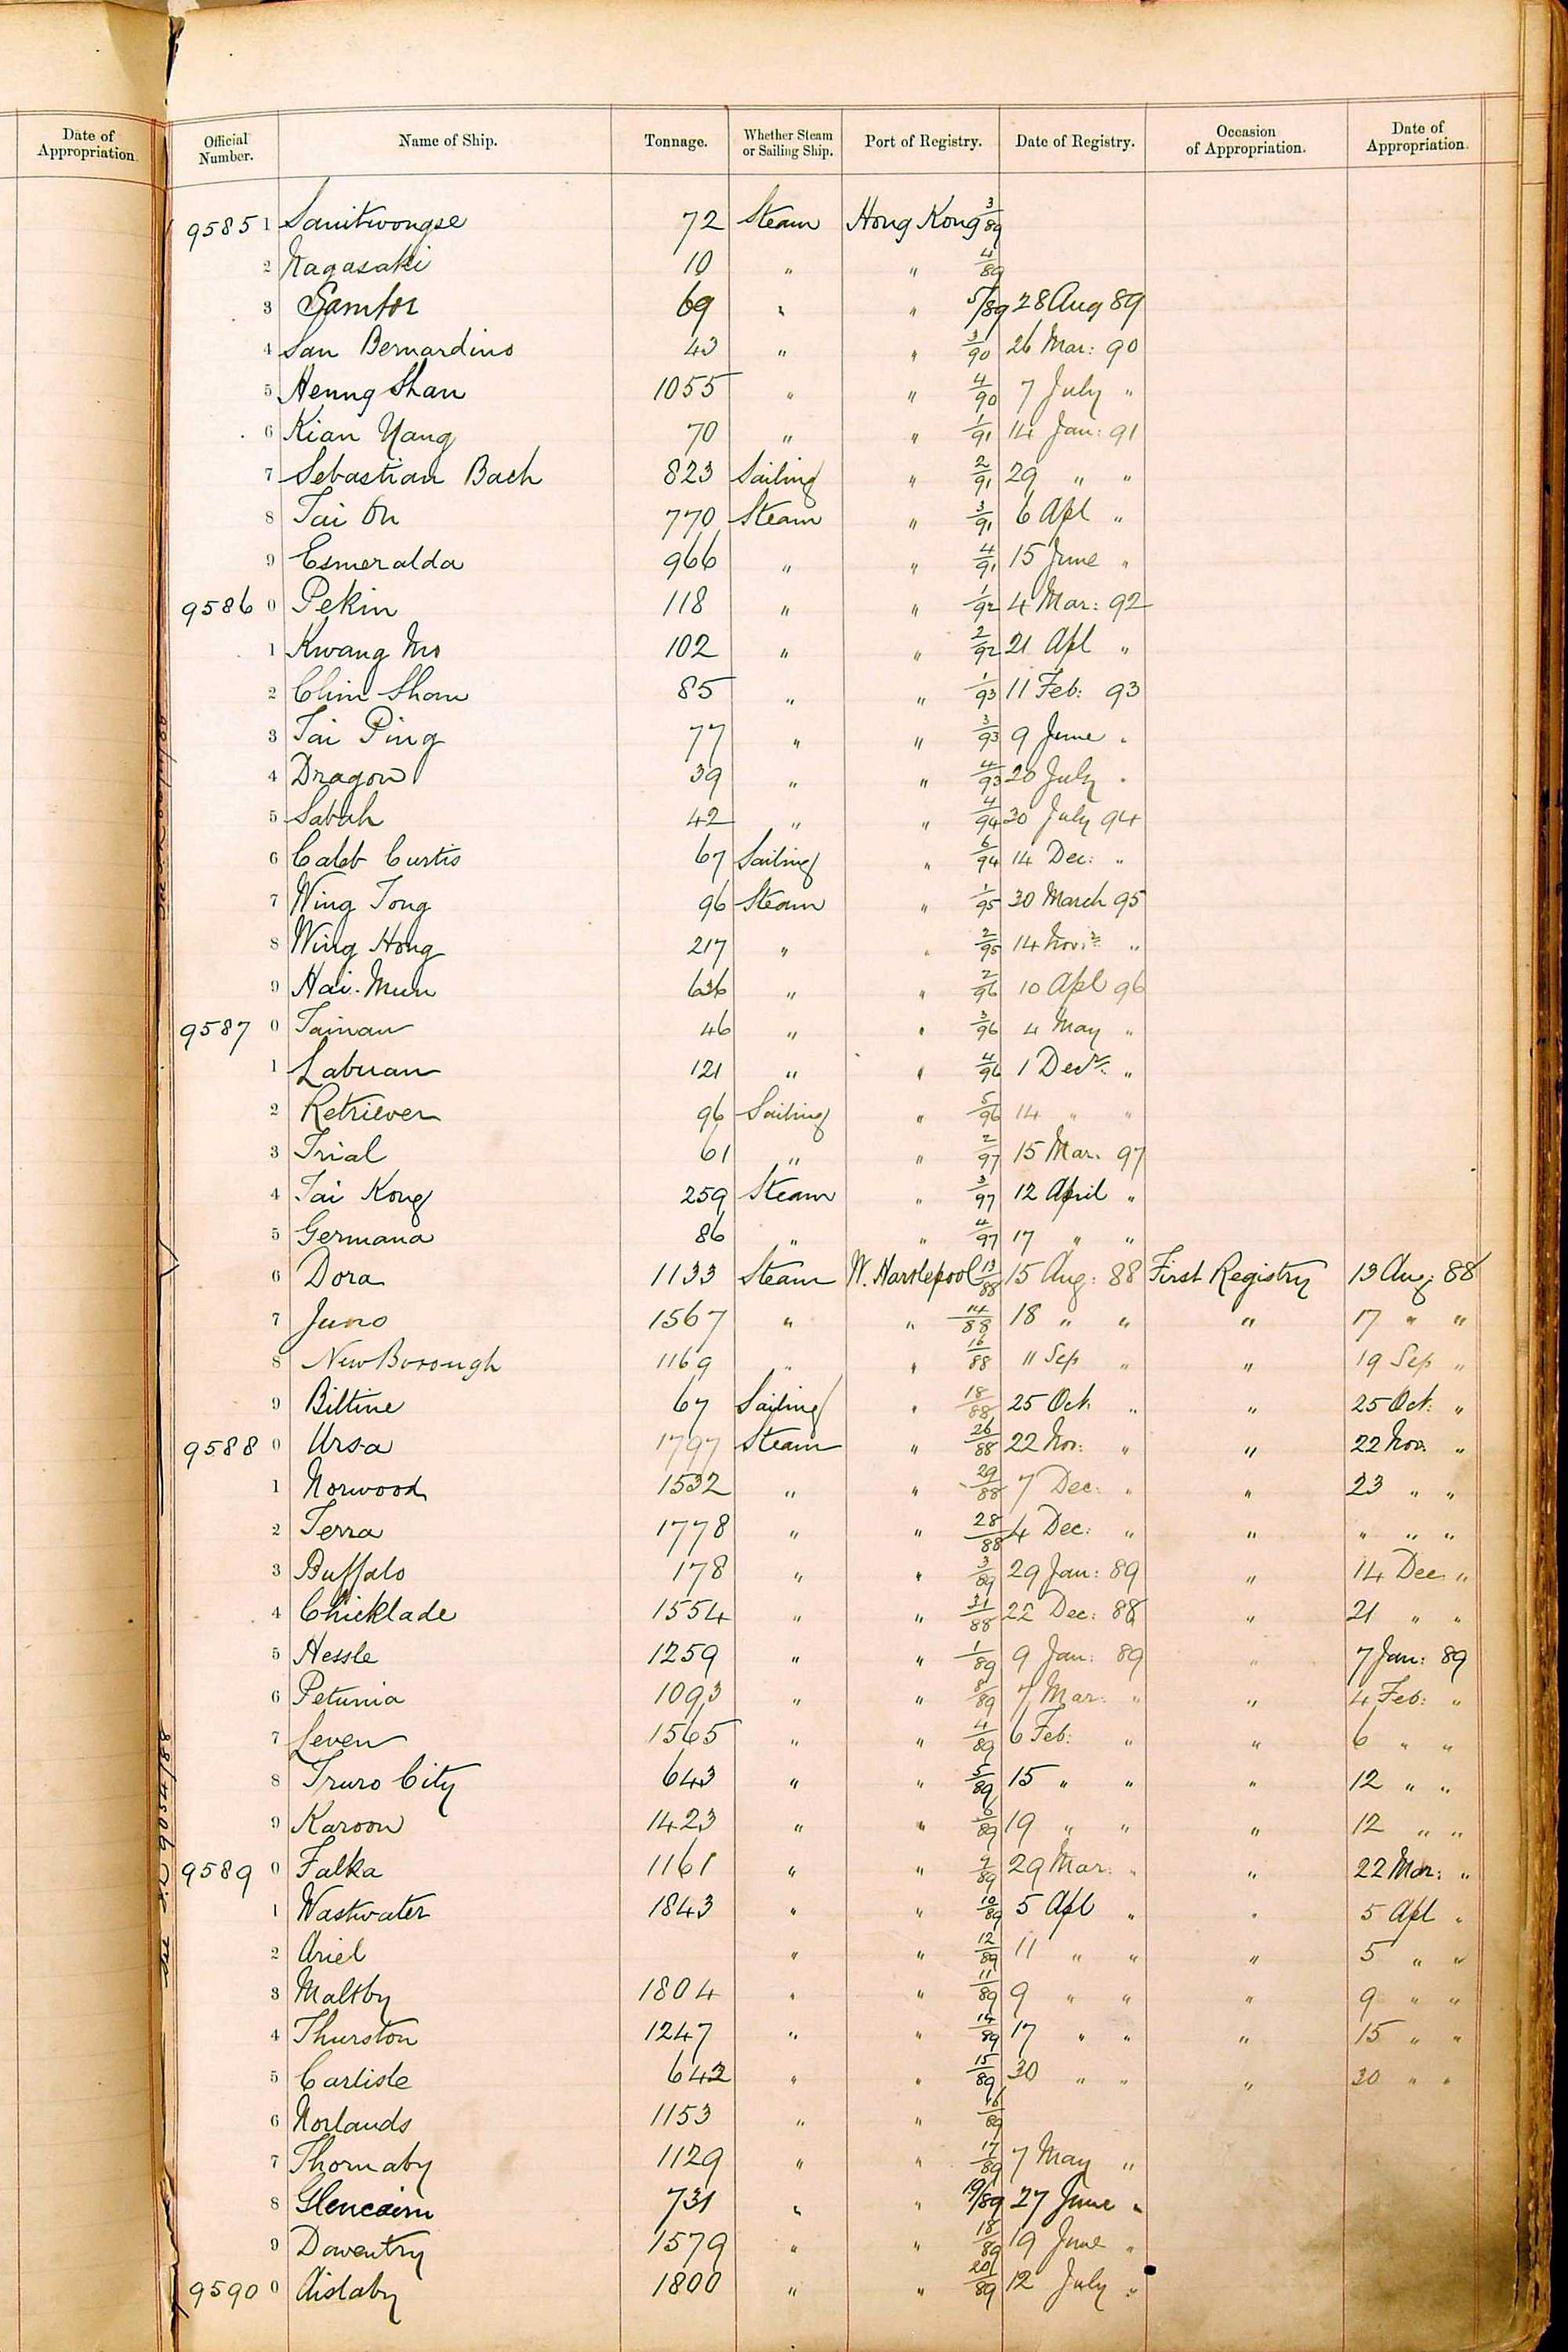 Date of Appropriation.
Official Number. Name of Ship. Tonnage. Whether Steam or Sailing Ship. Port of Registry. Date of Registry. Occasion of Appropriation. Date of Appropriation.
9585 1 Sanitwongse 72 Steam Hong Kong 3/89
2 Nagasaki 10 " " 4/89
3 69 " " 5/89 28 Aug 89
4 San Bernardino 43 " " 3/90 26 Mar: 90
5 Henng Shan 1055 " " 4/90 7 July "
6 Kian Yang 70 " " 1/91 14 Jan: 91
7 Sebastian Bach 823 Sailing " 2/91 29 " "
8 Tai On 770 Steam " 3/91 6 Apl "
9 Esmeralda 966 " " 4/91 15 June "
9586 0 Pekin 118 " " 1/92 4 Mar: 92
1 Kwang Mo 102 " " 2/92 21 Apl "
2 Chin Shan 85 " " 1/93 11 Feb: 93
3 Tai Ping 77 " " 3/93 9 June "
4 Dragon 39 " " 4/93 20 July "
5 Sabah 42 " " 4/94 30 July 94
6 Caleb Curtis 67 Sailing " 6/94 14 Dec: "
7 Wing Tong 96 Steam " 1/95 30 March 95
8 Wing Hong 217 " " 2/95 14 Novr "
9 Hai-Mun 636 " " 2/96 10 Apl 96
9587 0 Tainan 46 " " 3/96 4 May "
1 Labuan 121 " " 4/96 1 Decr. "
2 Retriever 96 Sailing " 5/96 14 " "
3 Trial 61 " " 2/97 15 Mar. 97
4 Tai Kong 259 Steam " 3/97 12 April "
5 Germana 86 " " 4/97 17 " "
6 Dora 1133 Steam W. Hartlepool 13/88 15 Aug: 88 First Registry 13 Aug: 88
7 Juno 1567 " " 14/88 18 " " " 17 " "
8 New Borough 1169 " " 16/88 11 Sep " " 19 Sep "
9 Biltine 67 Sailing " 18/88 25 Oct. " " 25 Oct: "
9588 0 Ursa 1797 Steam " 26/88 22 Nov: " " 22 Nov. "
1 Norwood 1532 " " 29/88 7 Dec: " " 23 " "
2 Terra 1778 " " 28/88 4 Dec: " " " " "
3 Buffalo 178 " " 3/89 29 Jan: 89 " 14 Dec "
4 Chicklade 1554 " " 31/88 22 Dec: 88 " 21 " "
5 Hessle 1259 " " 1/89 9 Jan: 89 " 7 Jan: 89
6 Petunia 1093 " " 8/89 7 Mar: " " 4 Feb: "
7 Leven 1565 " " 4/89 6 Feb: " " 6 " "
8 Truro City 643 " " 5/89 15 " " " 12 " "
9 Karoon 1423 " " 6/89 19 " " " 12 " "
9589 0 Falka 1161 " " 9/89 29 Mar: " " 22 Mar: "
1 Wastwater 1843 " " 10/89 5 Apl " " 5 Apl "
2 Ariel " " 12/89 11 " " " 5 " "
3 Maltby 1804 " " 11/89 9 " " " 9 " "
4 Thurston 1247 " " 14/89 17 " " " 15 " "
5 Carlisle 642 " " 15/89 30 " " " 30 " "
6 Norlands 1153 " " 16/89
7 Thornaby 1129 " " 17/89 7 May "
8 Glencairn 731 " " 19/89 27 June "
9 Daventry 1579 " " 18/89 19 June "
9590 0 Aislaby 1800 " " 20/89 12 July "